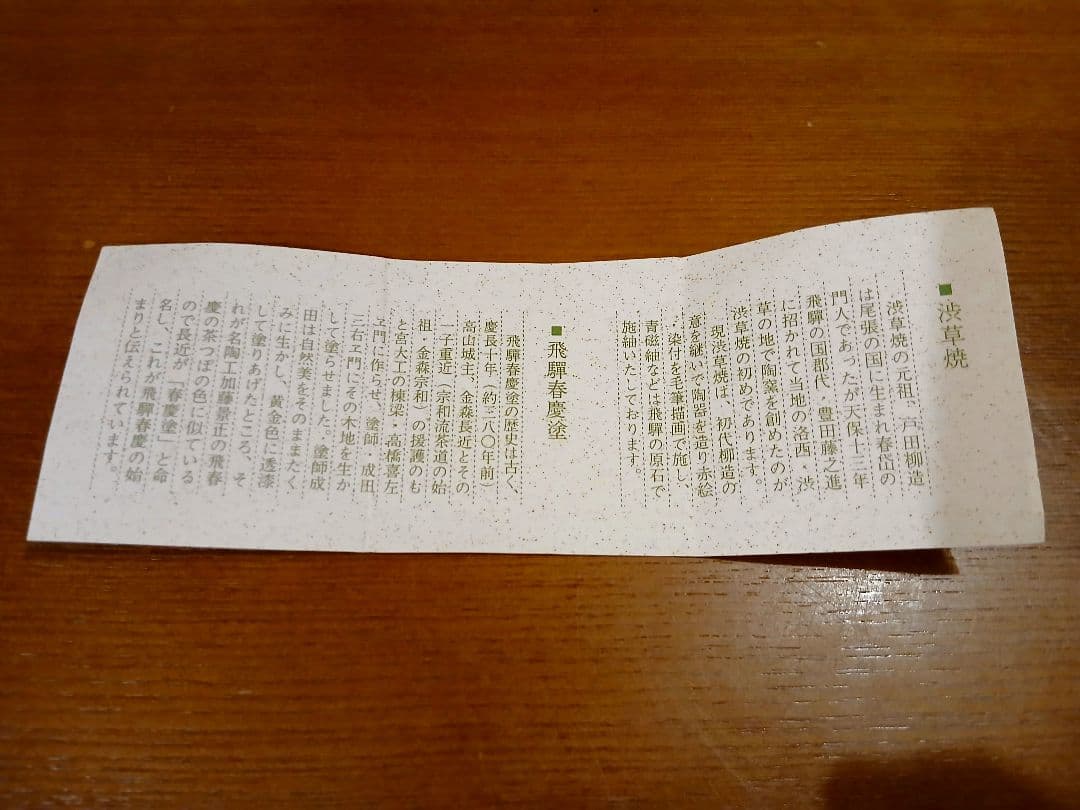 ■渋草焼
渋草焼の元祖、戸田柳造
は尾張の国に生まれ春山の
門人であったが天保十三年
飛驒の国郡代・豊田藤之進
に招かれて当地の洛西・渋
草の地で陶窯を創めたのが
渋草焼の初めであります。
現渋草焼は、初代柳造の
意を継いで陶器を造り赤絵
・染付を毛筆描画で施し、
青磁紬などは飛驒の原石で
施紬いたしております。
■飛驒春慶塗
飛驒春慶塗の歴史は古く、
慶長十年（約三八〇年前）
高山城主、金森長近とその
一子重近（宗和流茶道の始
祖・金森宗和）の援護のも
と宮大工の棟梁・高橋喜左
ヱ門に作らせ、塗師・成田
三右ヱ門にその木地を生か
して塗らせました。塗師成
田は自然美をそのままたく
みに生かし、黄金色に透漆
して塗りあげたところ、そ
れが名陶工加藤景正の飛春
慶の茶つぼの色に似ている
ので長近が「春慶塗」と命
名し、これが飛驒春慶の始
まりと伝えられています。